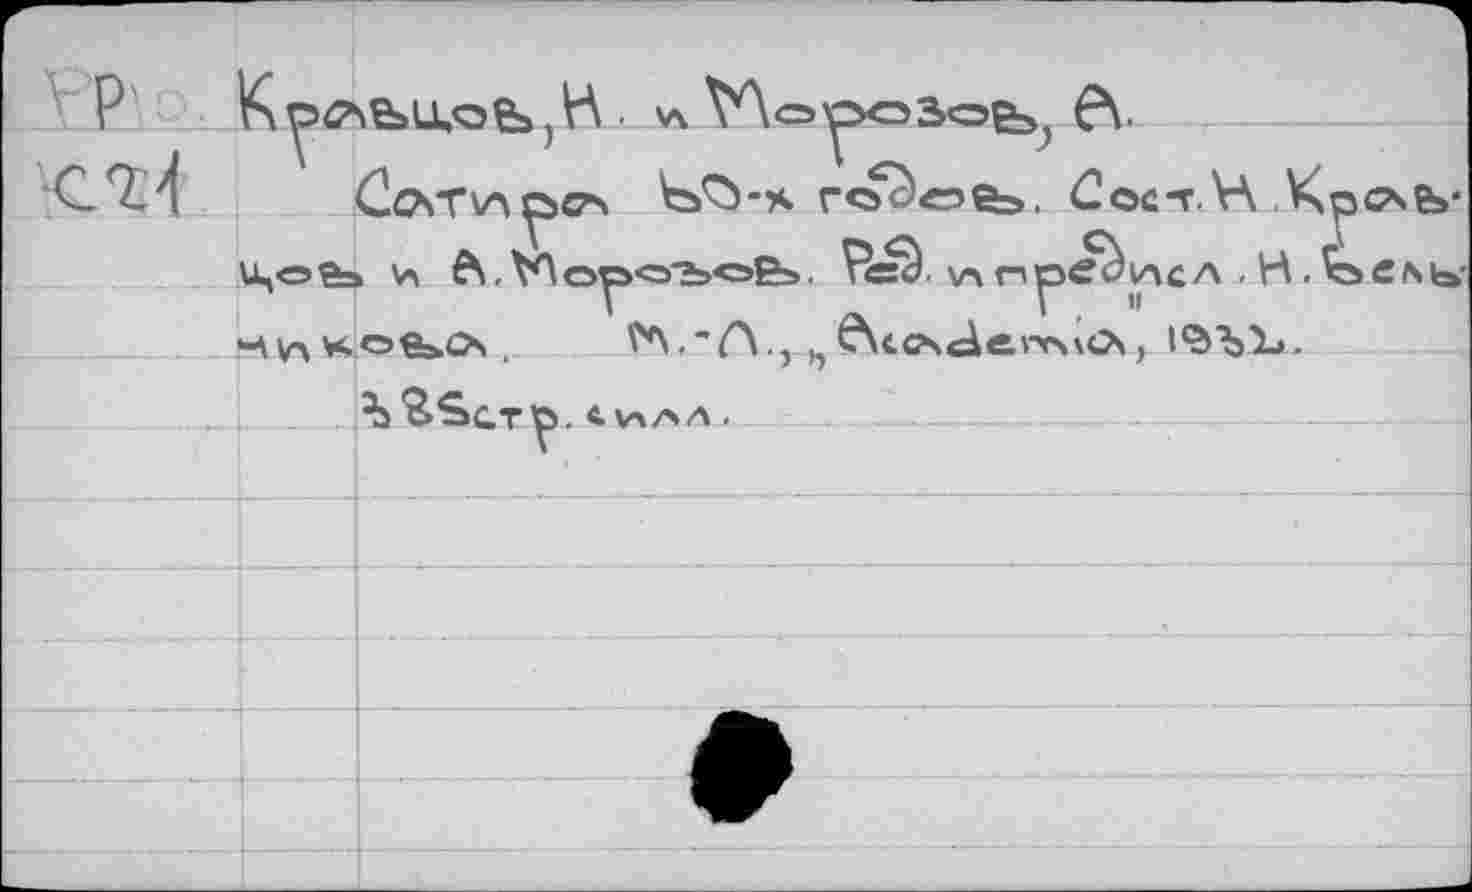 Р Кравцов, Н. и Морозов, А.
С21 Сатира 60-х годов. Сост. Н. Крав-
цов и А. Морозов. Ред. и предисл. Н. Бель-
чикова. М.-Л., „Academia", 1932.
стр. с илл.